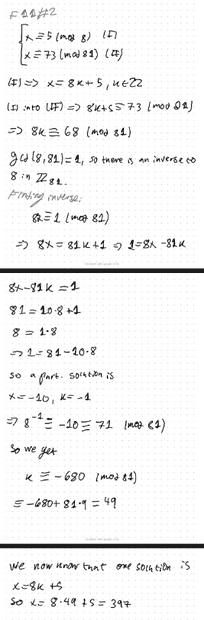 F11#2
x ≡ 5 (mod 8) (I)
x ≡ 73 (mod 81) (II)
(I) => x = 8k + 5, k ∈ ZZ
(I) into (II) => 8k+5 ≡ 73 (mod 81)
=> 8k ≡ 68 (mod 81)
gcd(8,81)=1, so there is an inverse to
8 in Z81.
Finding inverse:
8x ≡ 1 (mod 81)
=> 8x = 81k+1 => 1=8x-81k
8x-81k = 1
81 = 10·8+1
8 = 1·8
=> 1 = 81-10·8
So a part. solution is
x=-10, k=-1
=> 8^-1 ≡ -10 ≡ 71 (mod 81)
So we get
k ≡ -680 (mod 81)
≡ -680+81·9 = 49
We now know that one solution is
x=8k+5
So x = 8·49+5 = 397